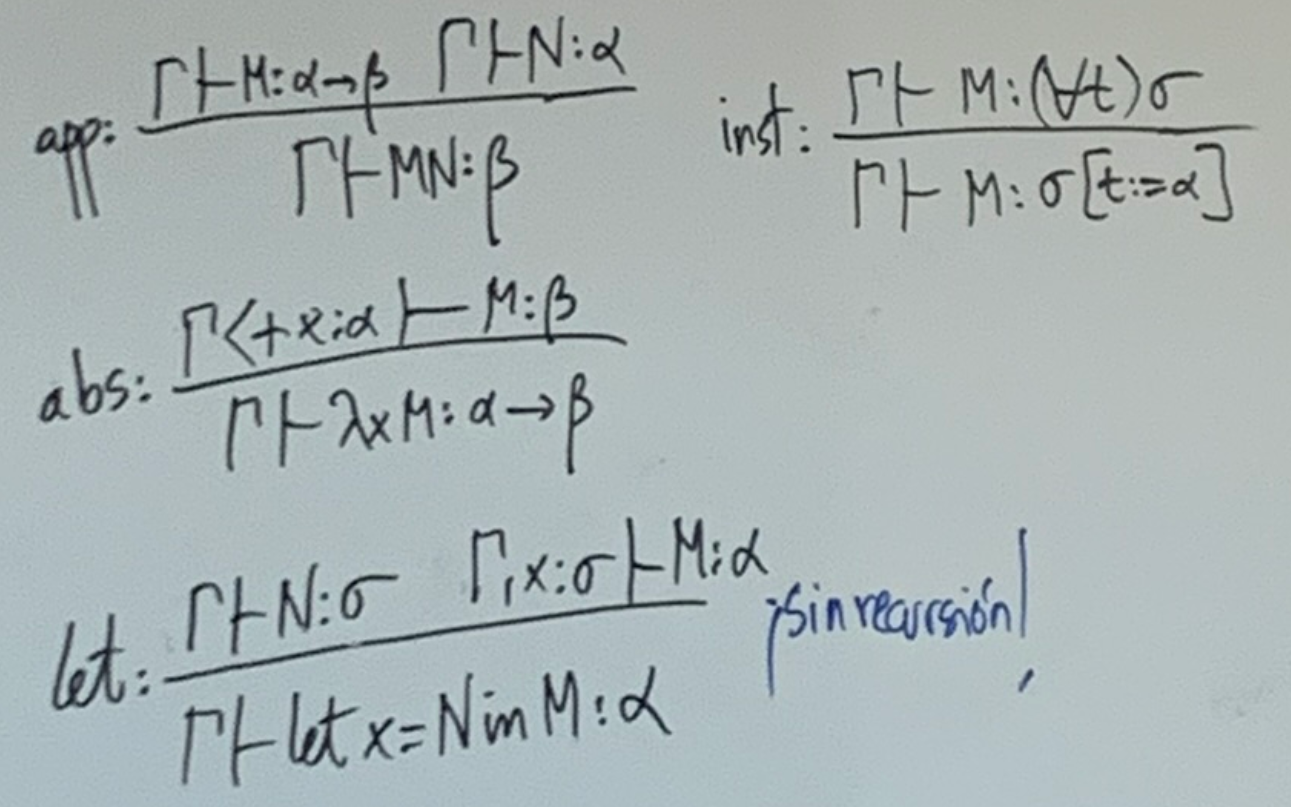 app: Γ⊢M:α→β Γ⊢N:α
Γ⊢MN:β
inst: Γ⊢ M:(∀t)σ
Γ⊢ M:σ[t:=α]
abs: Γ<+x:α ⊢ M:β
Γ⊢λxM:α→β
let: Γ⊢N:σ Γ,x:σ⊢M:α
Γ⊢let x=N in M:α
¡sin recursión!